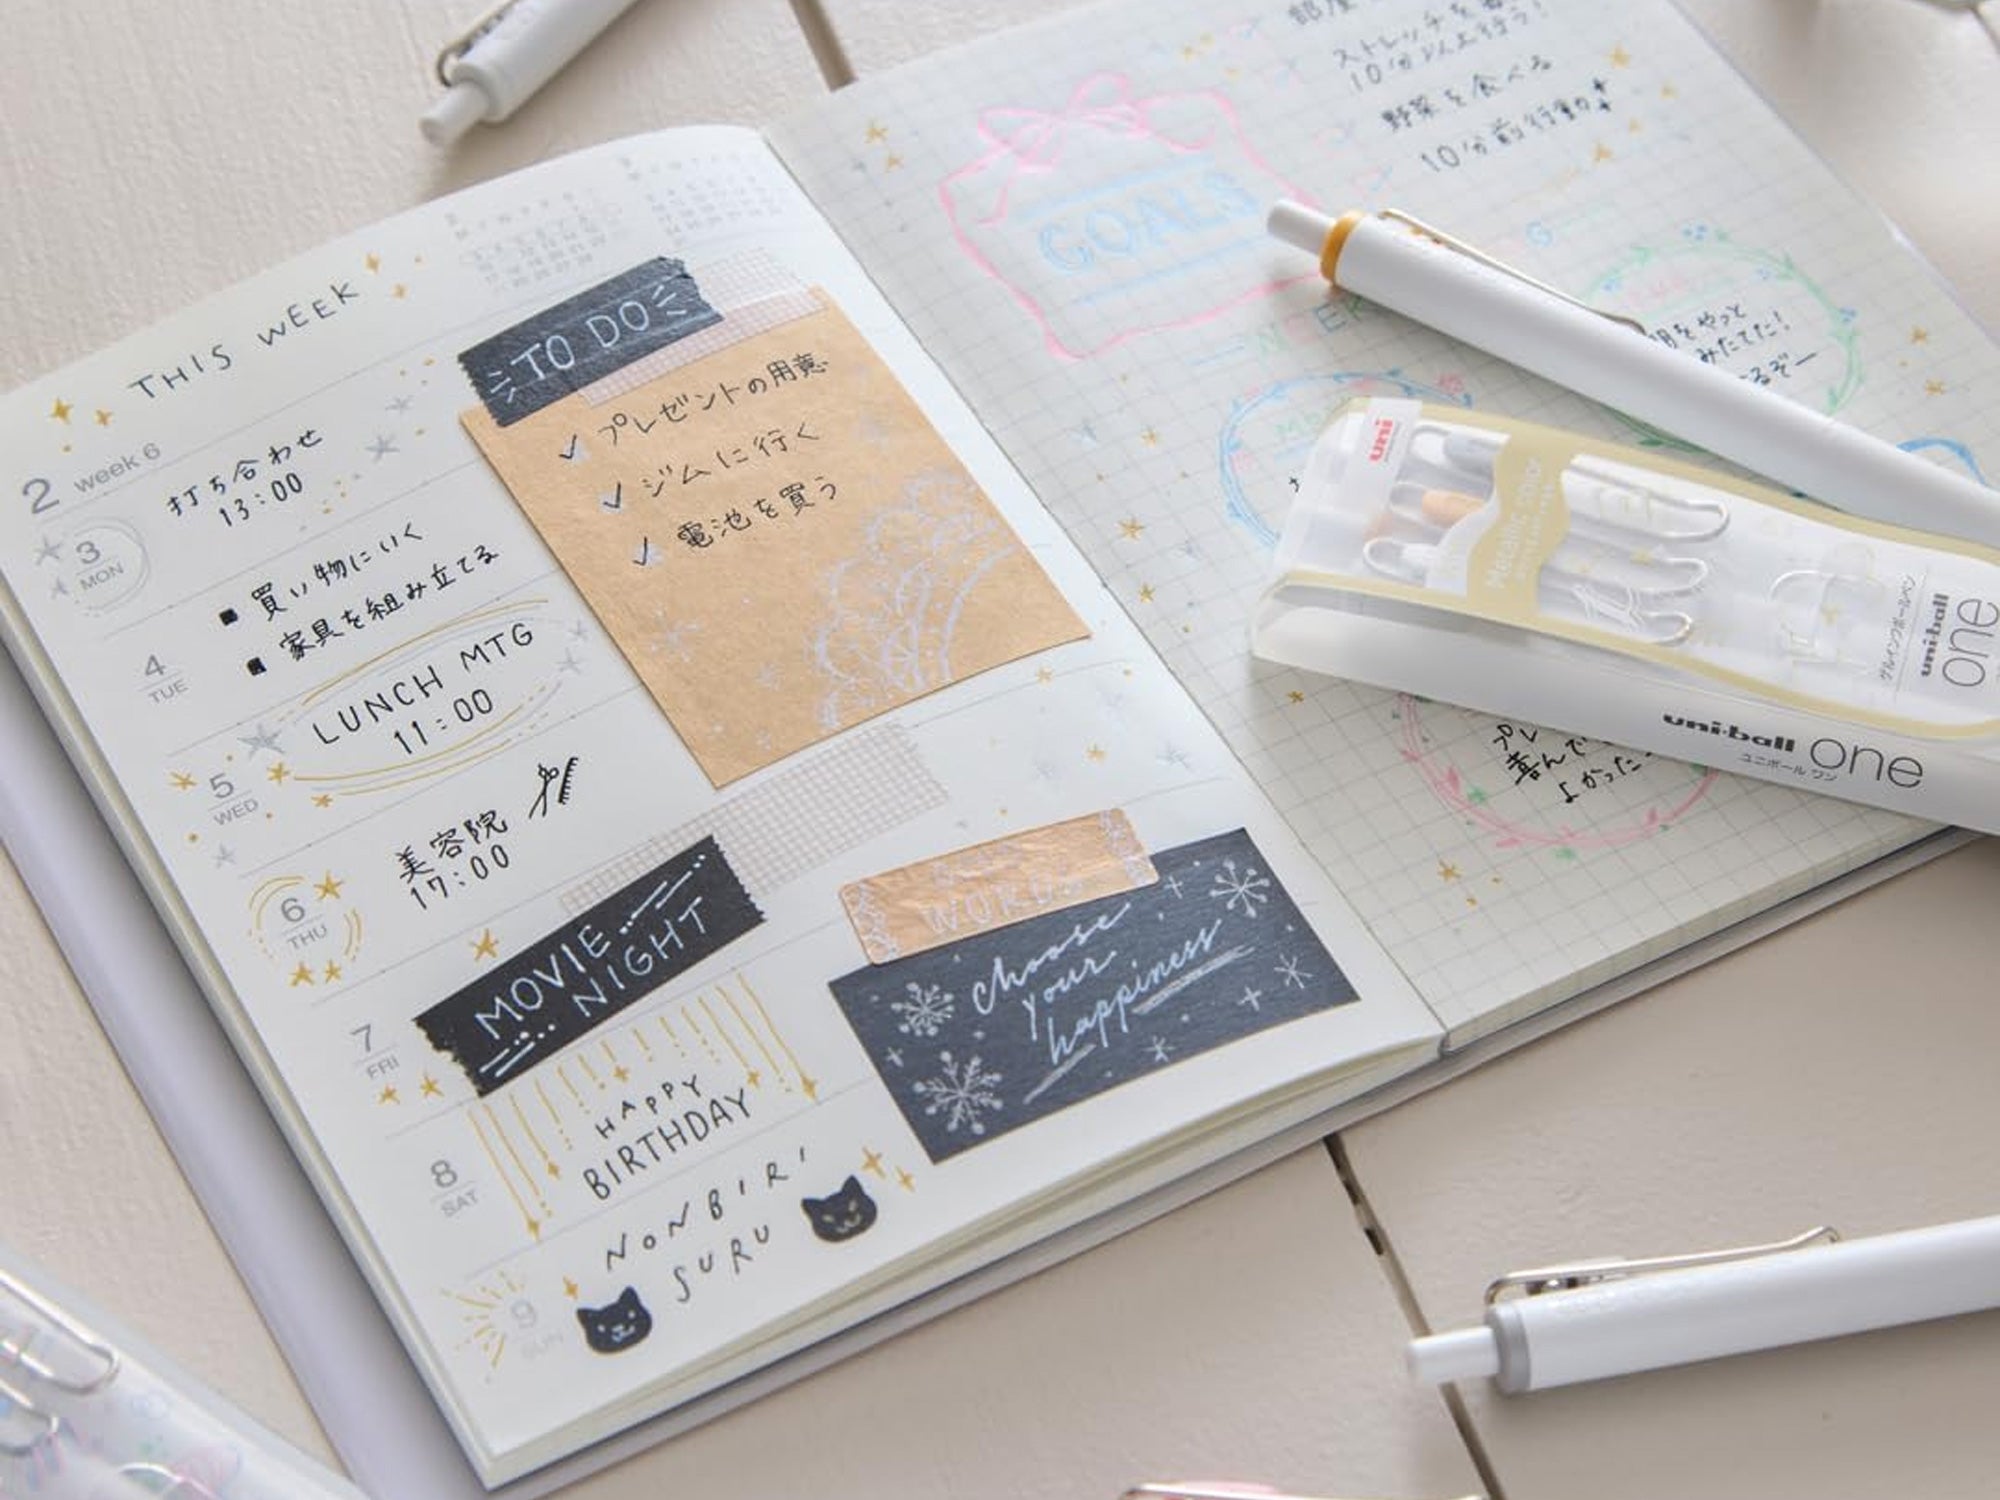 THIS WEEK
2 week 6
3
MON
打ち合わせ
13:00
4
TUE
買い物にいく
家具を組み立てる
5
WED
LUNCH MTG
11:00
6
THU
美容院
17:00
7
FRI
MOVIE
NIGHT
8
SAT
HAPPY
BIRTHDAY
9
SUN
NONBIRI
SURU
TO DO
プレゼントの用意
ジムに行く
電池を買う
WORDS
choose
your
happiness
GOALS
ストレッチを
10分以上行う!
野菜を食べる
10分前行動
をやっと
みたてた!
るぞー
プレ
喜んで
よかった
uni
Metallic color
ゲルインクボールペン
uni-ball
one
uni-ball one
ユニボール ワン